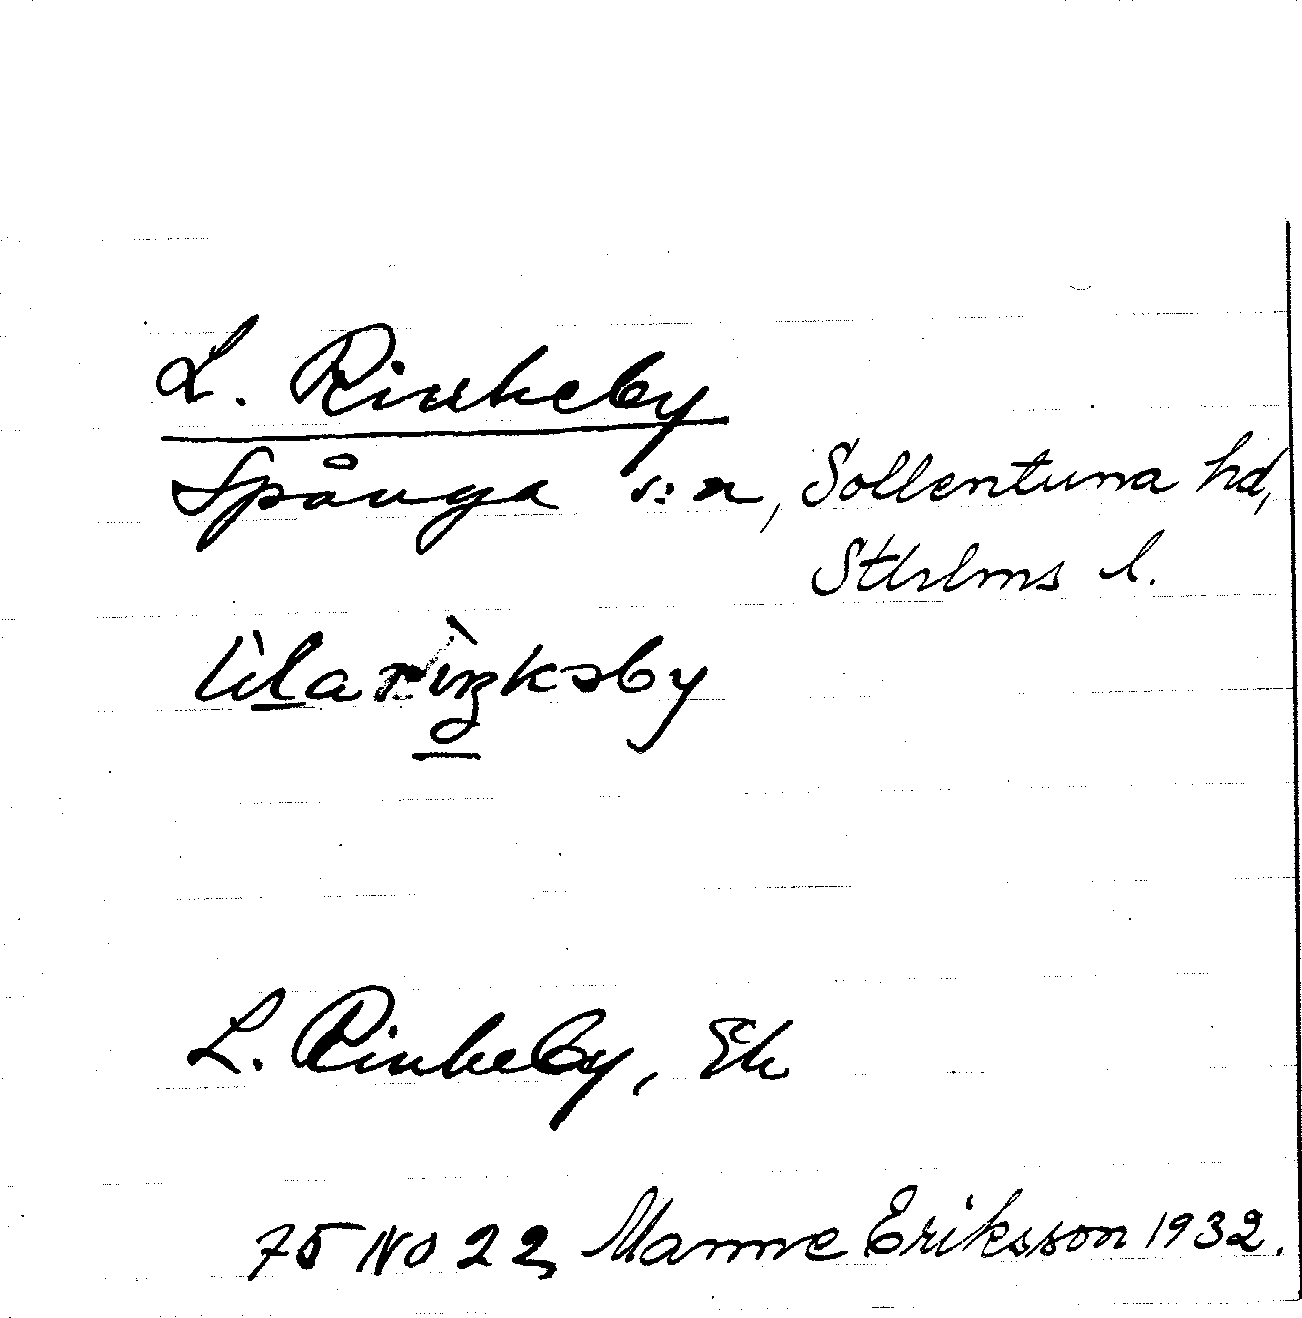 L. Rinkeby
Spånga s:n, Sollentuna hd,
Sthlms l.
L. Rinkeby, Ek
75 NO 22, Manne Eriksson 1932.